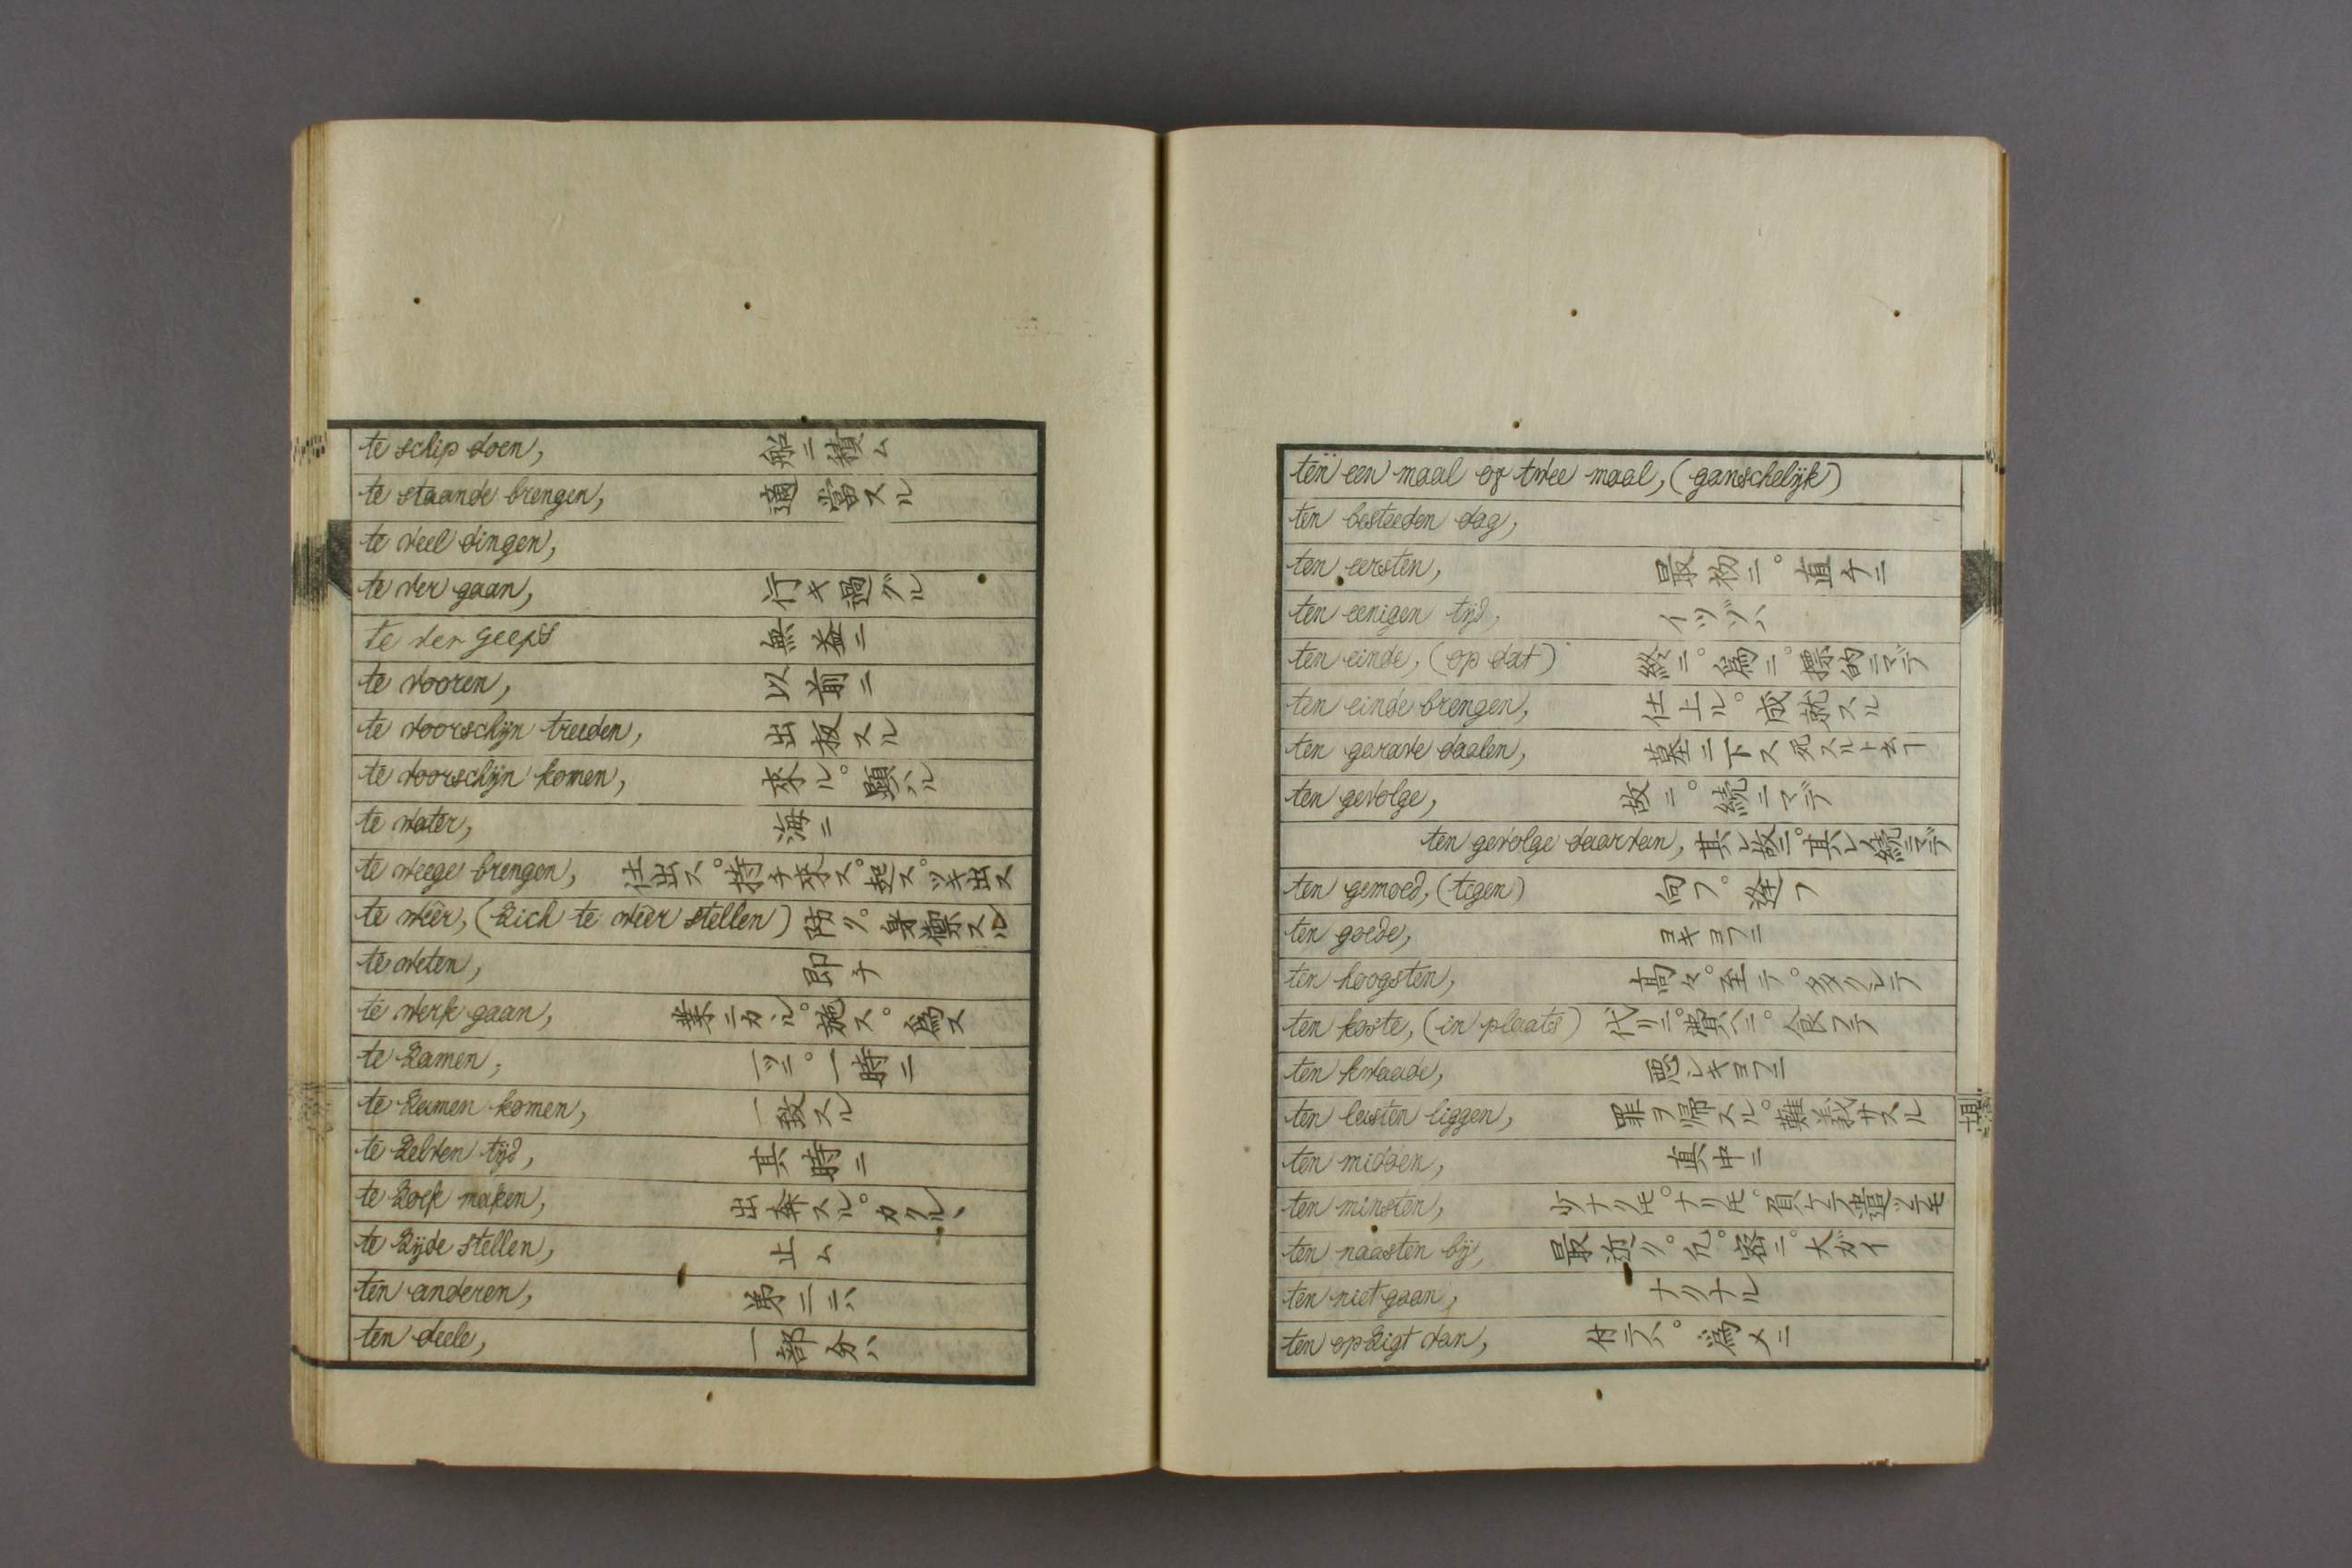 te schip doen, 舩ニ積ム
te staande brengen, 適當スル
te veel dingen,
te ver gaan, 行キ過グル
te ver geefs 無益ニ
te vooren, 以前ニ
te voorschijn treeden, 出扳スル
te voorschijn komen, 來ル。顯ハル
te water, 海ニ
te weege brengen, 仕出ス。持チ來ス。起ス。ツキ出ス
te wêer, (Zich te wêer stellen) 防グ。身禦スル
te weten, 即チ
te werk gaan, 業ニカヽル。施ス。爲ス
te Zamen, 一ツニ。一時ニ
te Zamen komen, 一致スル
te Zelven tijd, 其時ニ
te Zoek maken, 出奔スル。カクルヽ
te Zijde stellen, 止ム
ten anderen, 第二ニハ
ten deele, 一部分ハ
ten een maal of twee maal, (ganschelijk)
ten besteeden dag,
ten eersten, 最初ニ。直チニ
ten eenigen tijd, イツゾハ
ten einde, (op dat) 終ニ。爲ニ。標的ニマデ
ten einde brengen, 仕上ル。成就スル
ten garave daalen, 墓ニ下ス
ten gevolge, 故ニ。続ニマデ
ten gevolge daarvan, 其レ故ニ。其レ続ニマデ
ten gemoed, (tegen) 向フ。逢フ
ten goede, ヨキヨフニ
ten hoogsten, 高々。至テ。多クシテ
ten koste, (in plaats) 代リニ。費ヘニ。
ten kwaade, 悪シキヨフニ
ten leisten liggen, 罪ヲ帰スル。難義サスル
ten midden, 真中ニ
ten minsten, 少ナク𪜈。
ten naasten bij, 最近ク。凡。密ニ。大ガイ
ten niet gaan, ナクナル
ten opzigt van, 付テハ。爲メニ